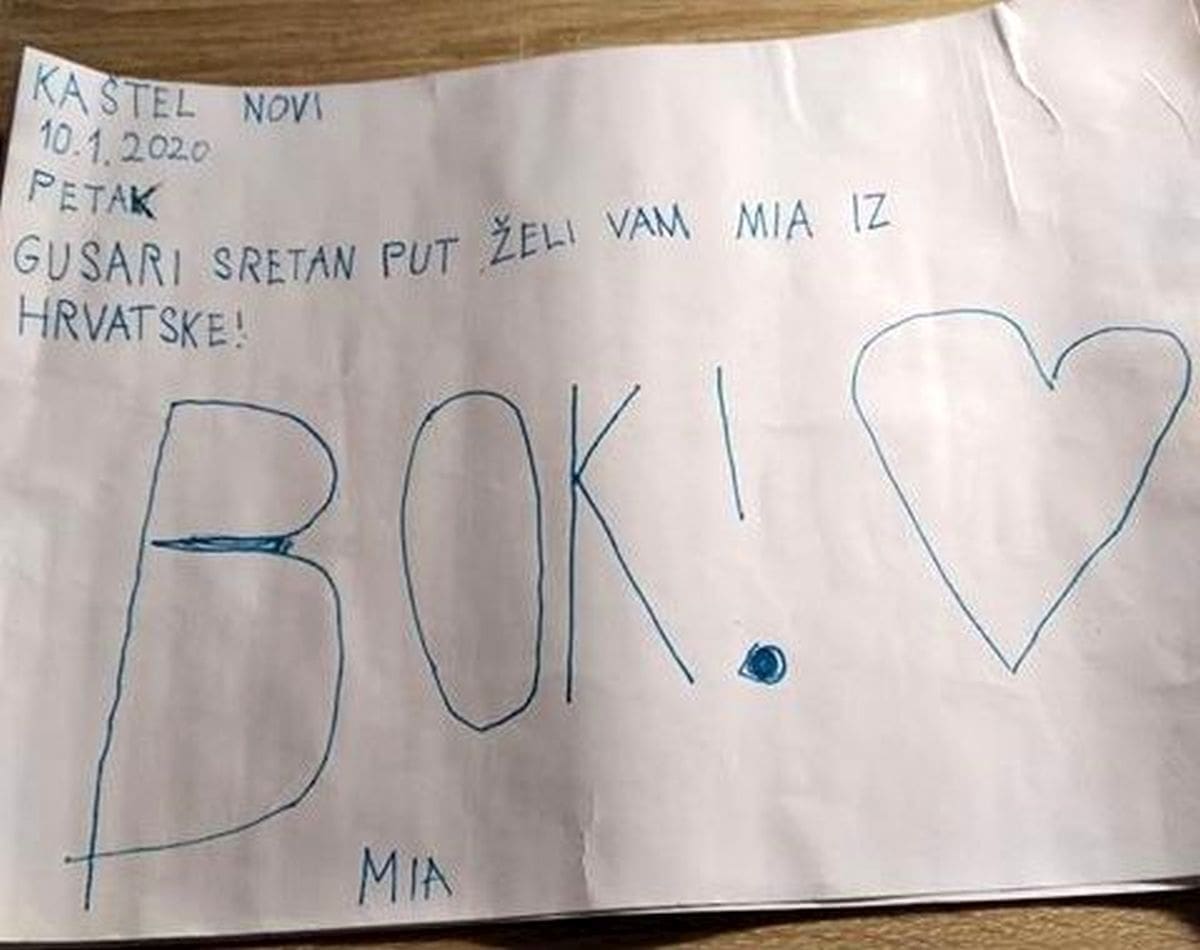 KAŠTEL NOVI
10.1.2020
PETAK
GUSARI SRETAN PUT ŽELI VAM MIA IZ
HRVATSKE!
BOK!
MIA